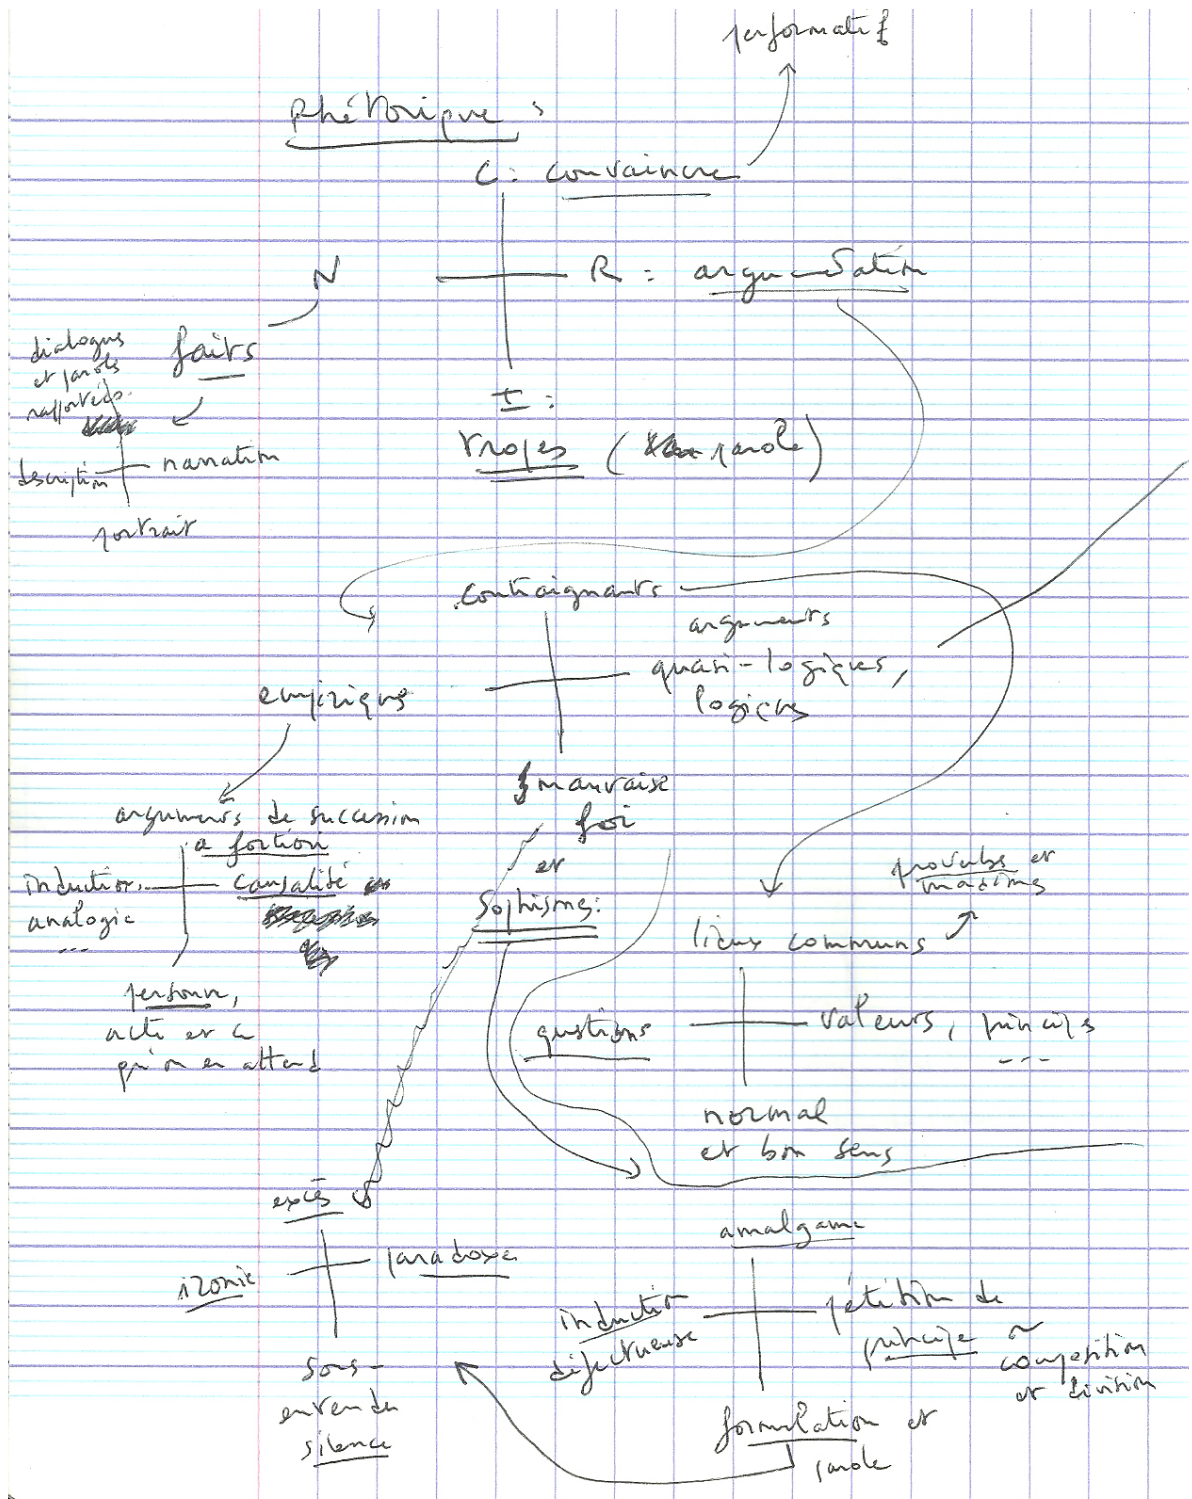 performatif
Rhétorique :
C : convaincre
N
R : argumentation
dialogues
et paroles
rapportés
faits
I :
tropes ( parole)
description
narration
portrait
contraignants
arguments
quasi-logiques,
logiques
empiriques
mauvaise
foi
et
Sophismes :
arguments de succession
a fortiori
induction,
analogie
...
causalité
personne,
acte et ce
qu'on en attend
proverbes et
maximes
lieux communs
questions
valeurs, principes
---
normal
et bon sens
excès
ironie
paradoxe
sous-
entendu
silence
amalgame
induction
défectueuse
pétition de
principe ~
composition
et division
formulation et
parole